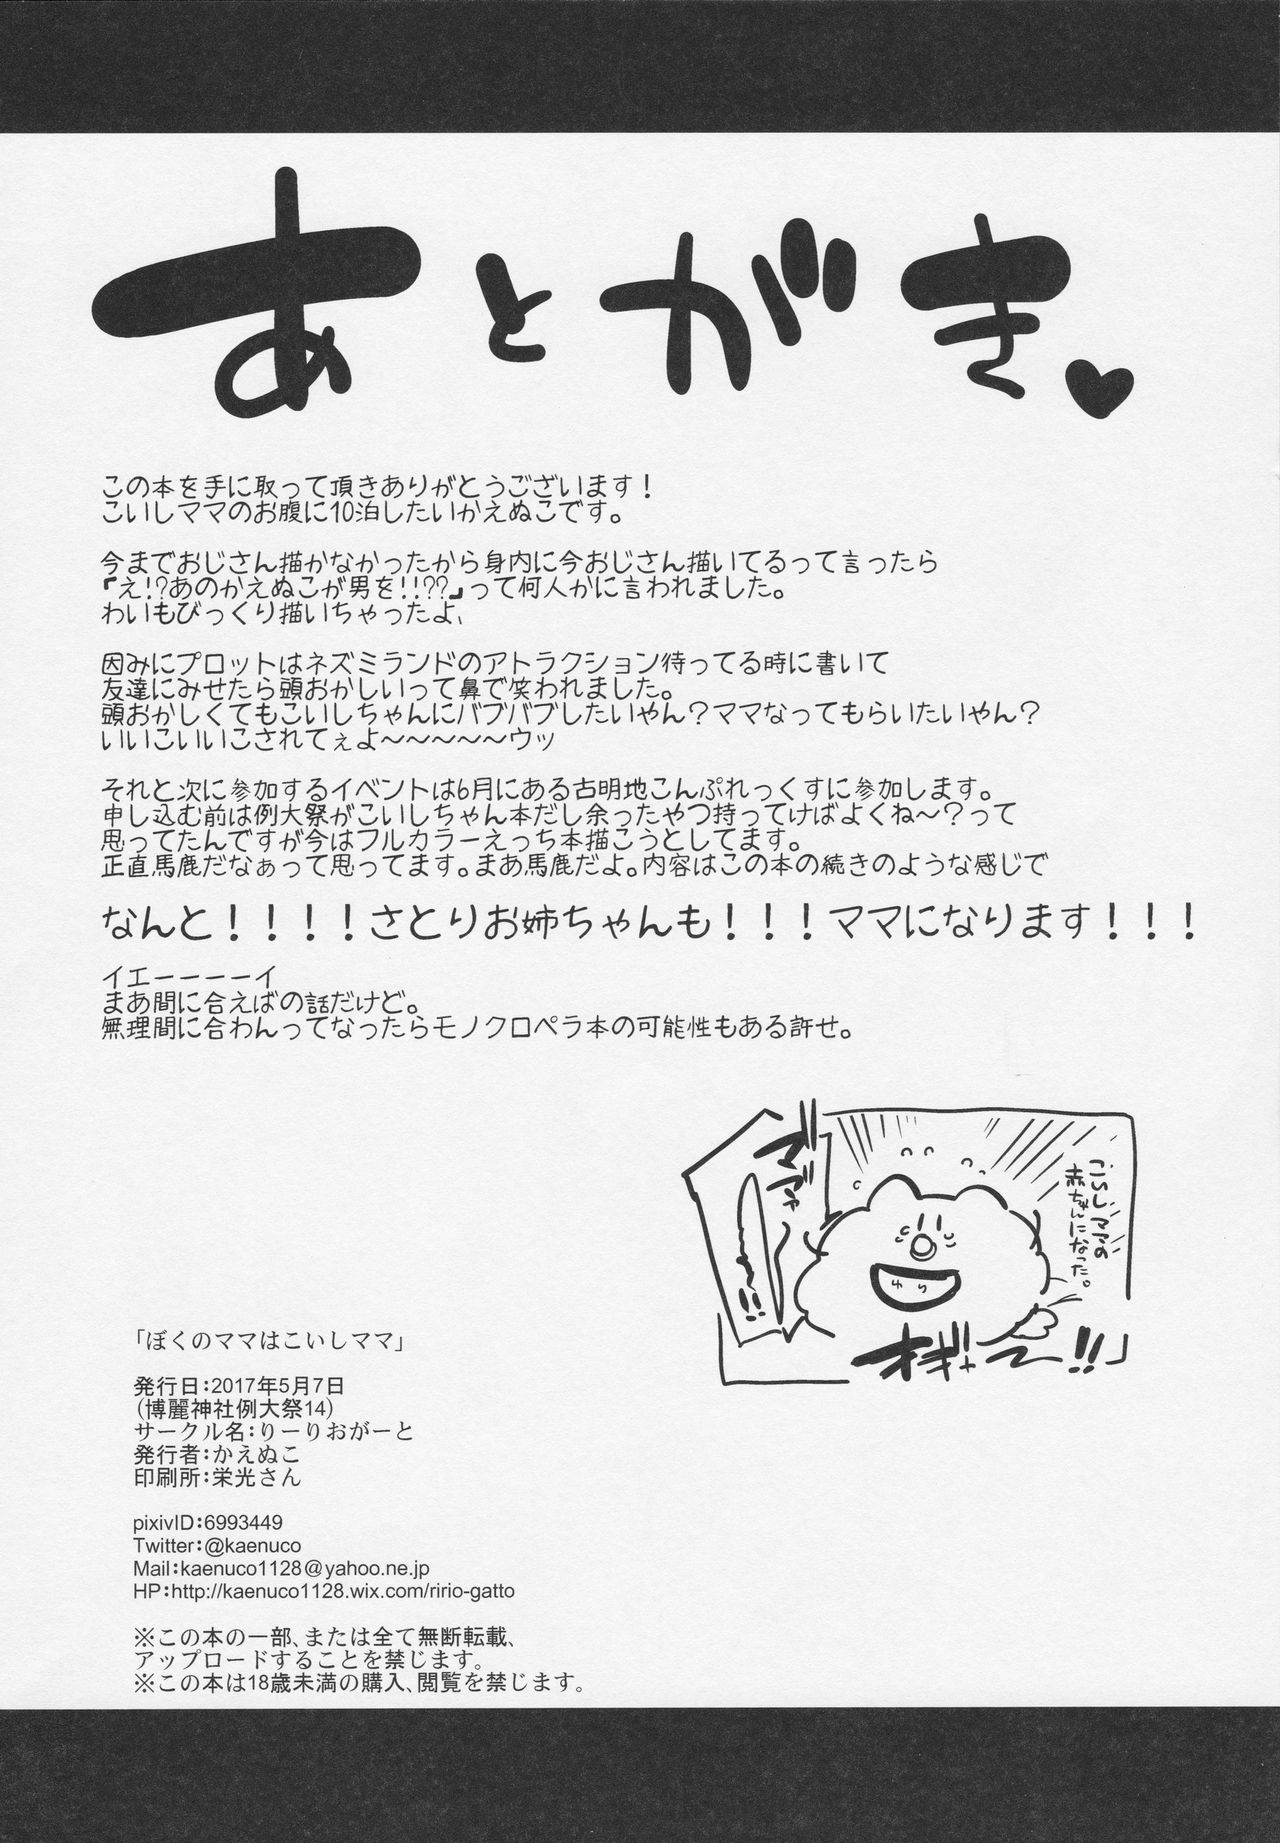 あとがき♥
この本を手に取って頂きありがとうございます！
こいしママのお腹に10泊したいかえぬこです。
今までおじさん描かなかったから身内に今おじさん描いてるって言ったら
『え!?あのかえぬこが男を!!??』って何人かに言われました。
わいもびっくり描いちゃったよ、
因みにプロットはネズミランドのアトラクション待ってる時に書いて
友達にみせたら頭おかしいって鼻で笑われました。
頭おかしくてもこいしちゃんにバブバブしたいやん？ママなってもらいたいやん？
いいこいいこされてぇよ～～～～～ウッ
それと次に参加するイベントは6月にある古明地こんぷれっくすに参加します。
申し込む前は例大祭がこいしちゃん本だし余ったやつ持ってけばよくね～？って
思ってたんですが今はフルカラーえっち本描こうとしてます。
正直馬鹿だなぁって思ってます。まあ馬鹿だよ。内容はこの本の続きのような感じで
なんと！！！！さとりお姉ちゃんも！！！ママになります！！！
イエーーーーイ
まあ間に合えばの話だけど。
無理間に合わんってなったらモノクロペラ本の可能性もある許せ。
こいしママの
赤ちゃんになった。
マ゛マ゛ァ
ゆり
オギャー!!」
「ぼくのママはこいしママ」
発行日：2017年5月7日
（博麗神社例大祭14）
サークル名：りーりおがーと
発行者：かえぬこ
印刷所：栄光さん
pixivID：6993449
Twitter：@kaenuco
Mail：kaenuco1128@yahoo.ne.jp
HP：http://kaenuco1128.wix.com/ririo-gatto
※この本の一部、または全て無断転載、
アップロードすることを禁じます。
※この本は18歳未満の購入、閲覧を禁じます。